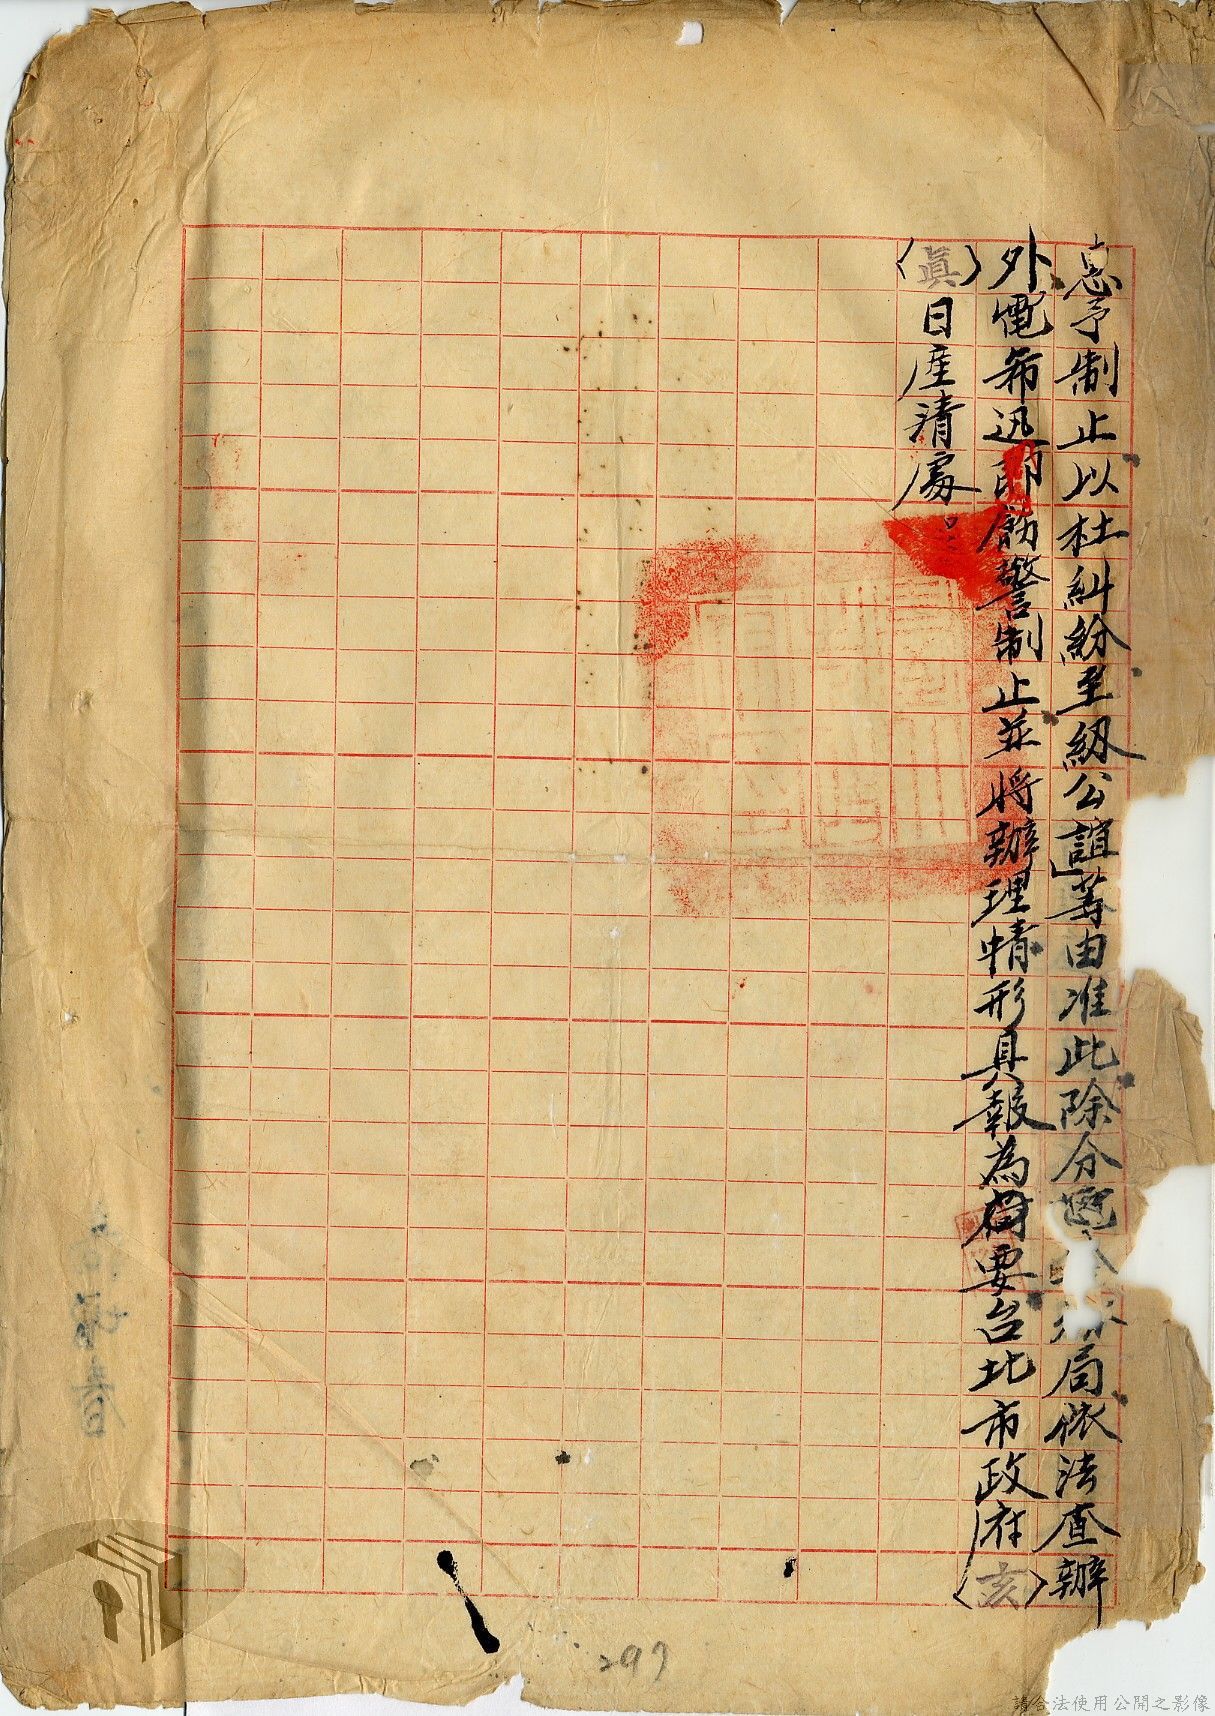 惠予制止以杜糾紛至紉公誼」等由准此除分電 局依法查辦
外電希迅即飭警制止並將辦理情形具報為要台北市政府（亥）
（真）日產清處
297
請合法使用公開之影像